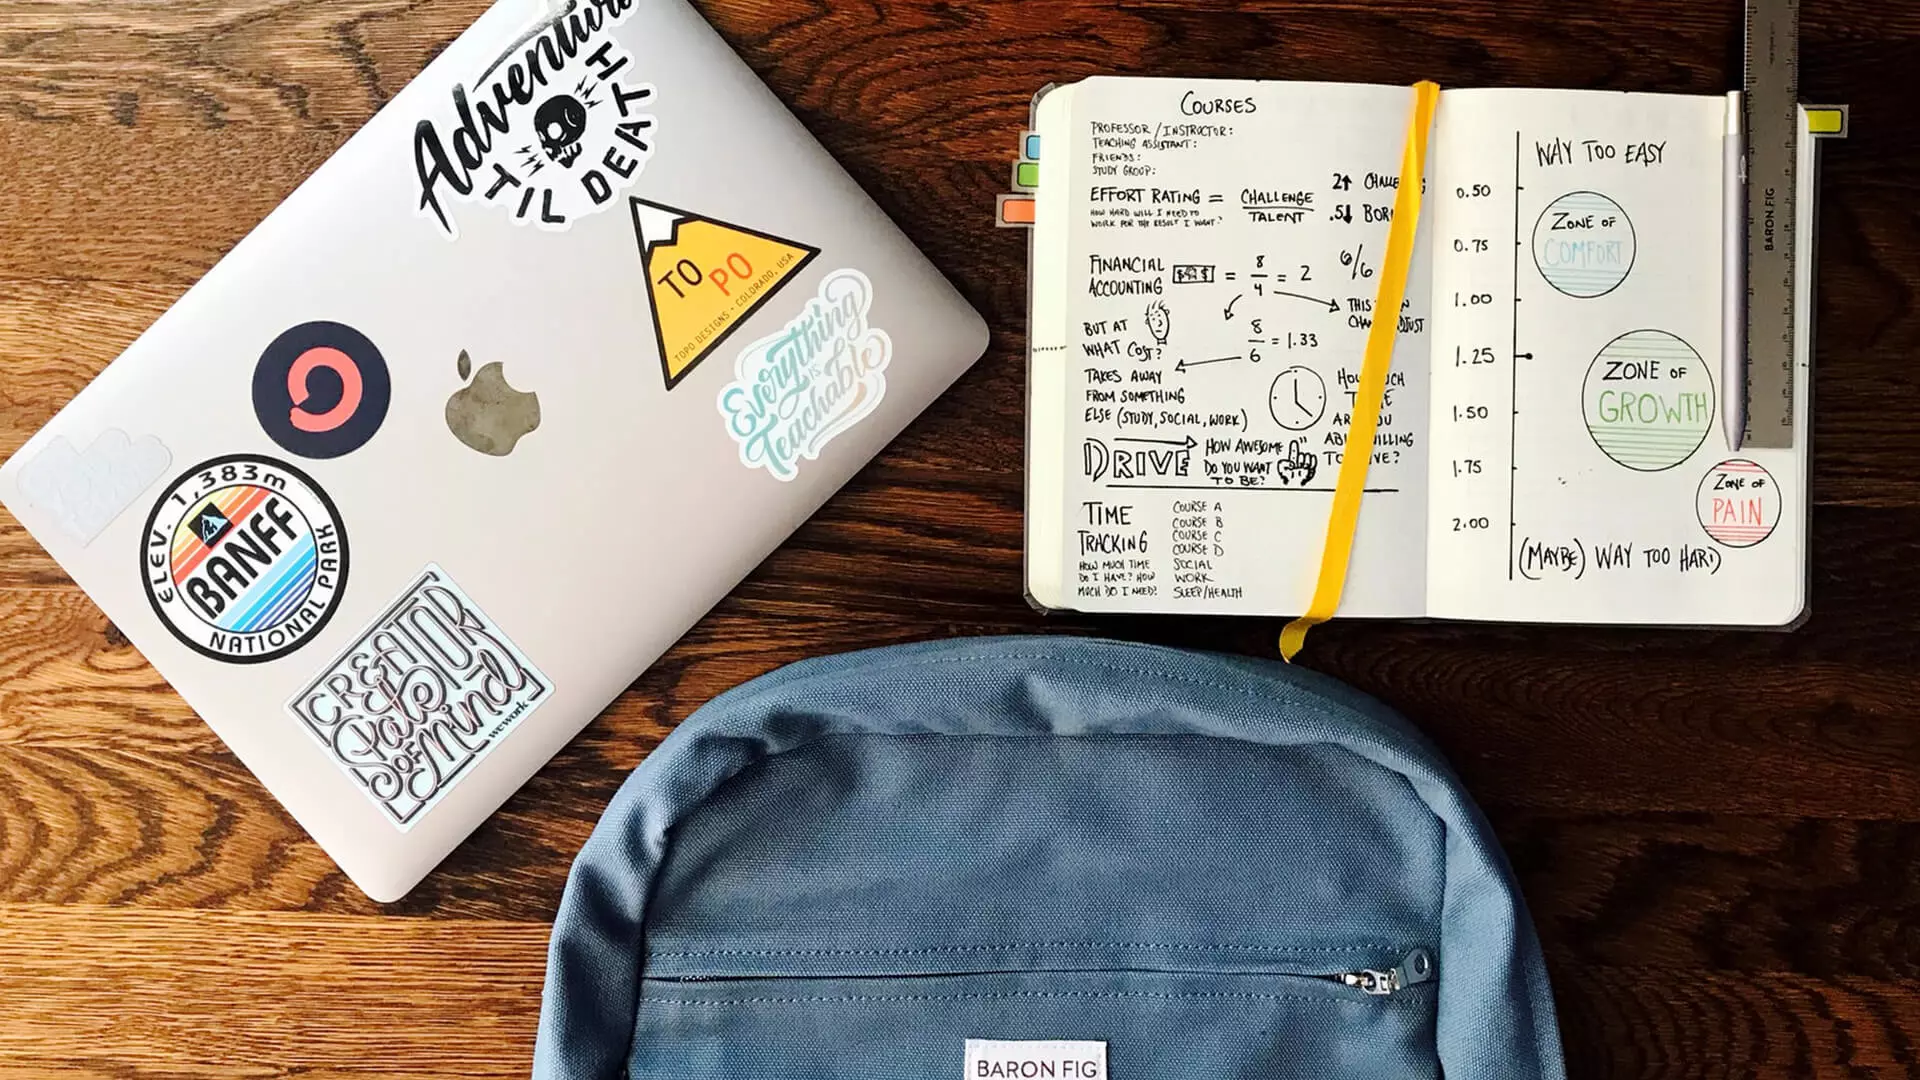 Adventure
TIL DEATH
TO PO
TOPO DESIGNS • COLORADO, USA
Everything
is
Teachable
ELEV. 1,383m
BANFF
NATIONAL PARK
CREATOR
State
OF
Mind
wework
COURSES
PROFESSOR / INSTRUCTOR:
TEACHING ASSISTANT:
FRIENDS:
STUDY GROUP:
EFFORT RATING = CHALLENGE
TALENT
HOW HARD WILL I NEED TO
WORK FOR THE RESULT I WANT?
2↑
.5↓
FINANCIAL
ACCOUNTING $ $ = 8/4 = 2
6/6
THIS
BUT AT
WHAT COST?
8/6 = 1.33
TAKES AWAY
FROM SOMETHING
ELSE (STUDY, SOCIAL, WORK)
DRIVE
HOW AWESOME
DO YOU WANT
TO BE?
TIME
TRACKING
HOW MUCH TIME
DO I HAVE? HOW
MUCH DO I NEED?
COURSE A
COURSE B
COURSE C
COURSE D
SOCIAL
WORK
SLEEP/HEALTH
WAY TOO EASY
0.50
0.75
1.00
1.25
1.50
1.75
2.00
ZONE OF
COMFORT
ZONE OF
GROWTH
ZONE OF
PAIN
(MAYBE) WAY TOO HARD
BARON FIG
BARON FIG